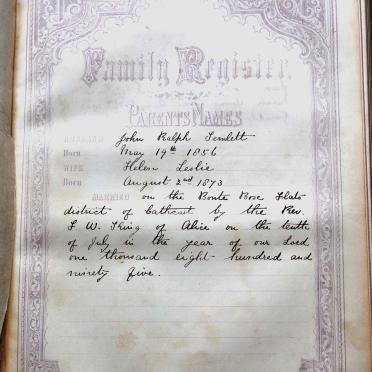 Family Register.
PARENTS NAMES
HUSBAND John Ralph Temlett
Born May 19th 1856
WIFE Helen Leslie
Born August 2nd 1873
MARRIED on the Bonte Bok Flats
district of Cathcart by the Rev.
T. W. King of Alice on the tenth
of July in the year of our Lord
one thousand eight-hundred and
ninety five.